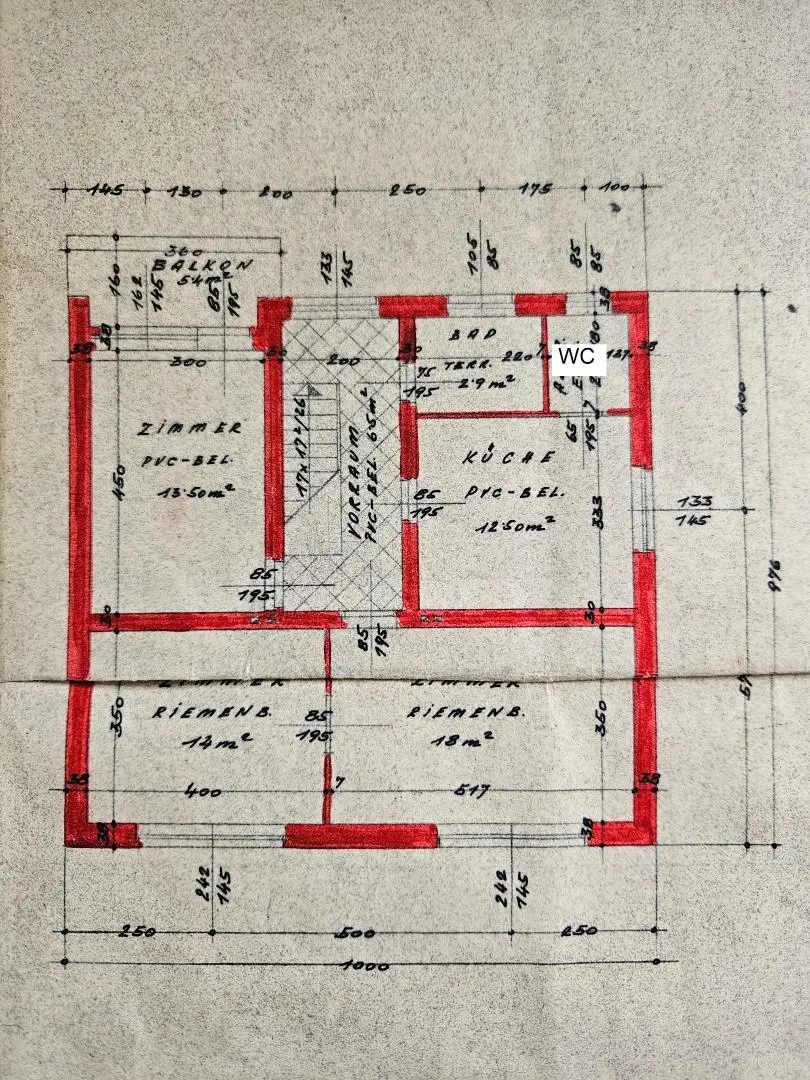 145 130 200 250 175 100
360
BALKON
5·4m²
160
162
145
85
195
133
145
105
85
85
85
38
38
300
200
30
220
7
137
38
BAD
TERR.
2·9 m²
75
195
WC
65
195
7
ZIMMER
PVC-BEL.
13·50m²
450
17x17²/26
VORRAUM
PVC-BEL. 6·5m²
KÜCHE
PVC-BEL.
12·50m²
85
195
333
133
145
400
976
85
195
30
30
85
195
ZIMMER
RIEMENB.
14 m²
350
85
195
ZIMMER
RIEMENB.
18 m²
350
38
400
7
517
38
38
38
242
145
242
145
250 500 250
1000